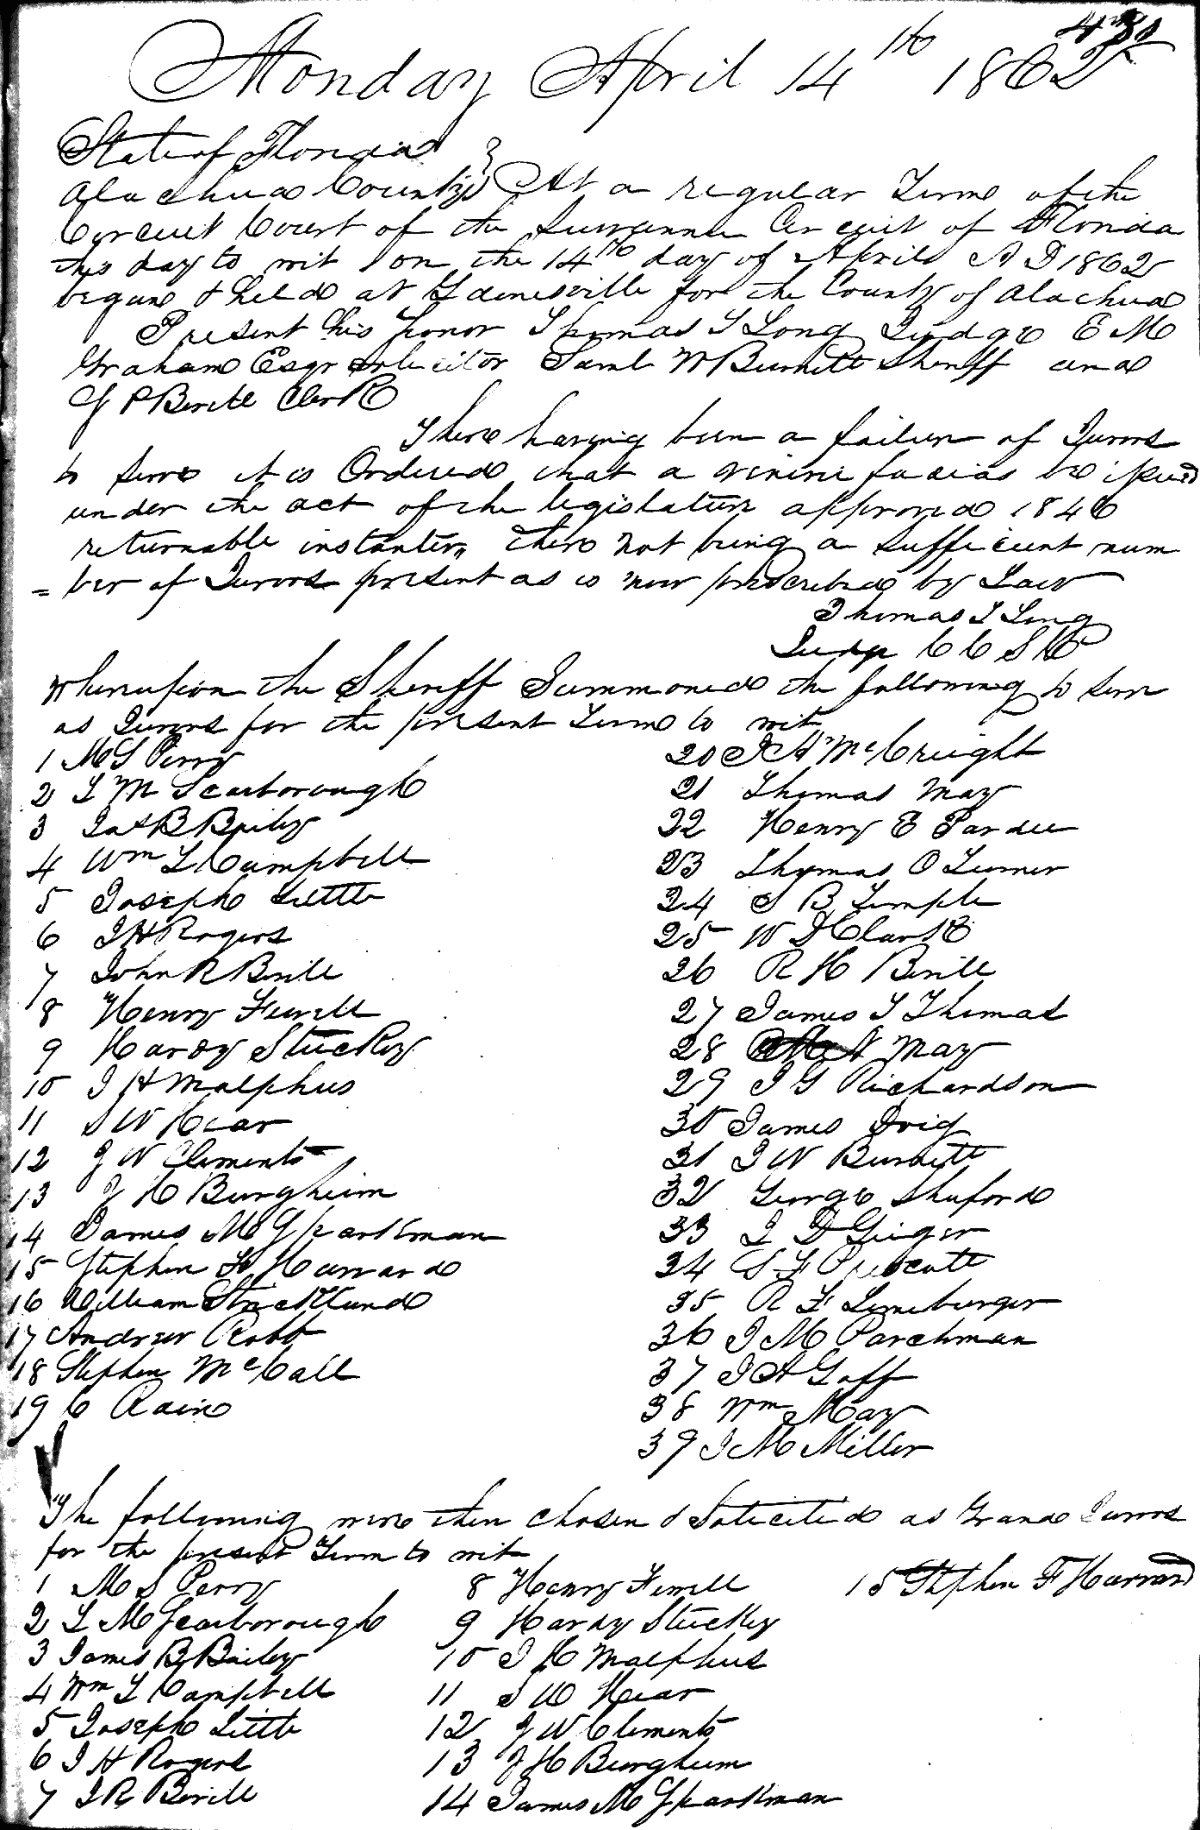 Monday April 14th 1862
State of Florida }
Alachua County } At a regular Term of the
Circuit Court of the Suwannee Circuit of Florida
this day to wit on the 14th day of April A D 1862
begun & held at Gainesville for the County of Alachua
Present his honor Thomas T Long Judge E M
Graham Esqr Solicitor Saml W Burnett Sheriff and
J P Bevill Clerk
There having been a failure of Jurors
to serve it is Ordered that a venire facias be issued
under the act of the legislature approved 1846
returnable instanter, there not being a sufficient num
= ber of Jurors present as is now prescribed by Law
Thomas T Long
Judge C C S C
Whereupon the Sheriff Summoned the following to serve
as Jurors for the present Term to wit
1 M S Perry
20 J A McCreight
2 L M Scarborough
21 Thomas May
3 Jas B Bailey
22 Henry E Pardee
4 Wm L Campbell
23 Thomas O Turner
5 Joseph Little
24 S B Temple
6 J H Rogers
25 W D Clark
7 John R Bevill
26 R H Bevill
8 Henry Fewell
27 James T Thomas
9 Hardy Stuckey
28 N May
10 J H Malphus
29 J G Richardson
11 S W Kear
30 James Doig
12 J W Clements
31 J W Burnett
13 J H Burgheim
32 George Shuford
14 James M Sparkman
33 J D Geiger
15 Stephen F Harvard
34 S F Prescott
16 William Strickland
35 R F Lineburger
17 Andrew Robb
36 J M Parchman
18 Stephen McCall
37 J A Goff
19 C Rain
38 Wm May
39 J M Miller
The following were then chosen & Solicited as Grand Jurors
for the present Term to wit
1 M S Perry
8 Henry Fewell
15 Stephen F Harvard
2 L M Scarborough
9 Hardy Stuckey
3 James B Bailey
10 J H Malphus
4 Wm L Campbell
11 S W Kear
5 Joseph Little
12 J W Clements
6 J H Rogers
13 J H Burgheim
7 J R Bevill
14 James M Sparkman